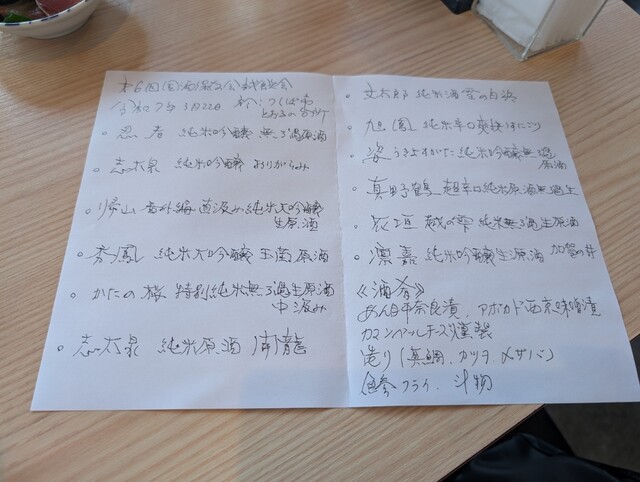 第6回
令和7年3月22日 於:つくば市
・忍者 純米吟醸 無ろ過原酒
・志太泉 純米吟醸 おりがらみ
・帰山 番外編 直汲み純米大吟醸
生原酒
・秀鳳 純米大吟醸 玉苗 原酒
・かたの桜 特別純米無ろ過生原酒
中汲み
・志太泉 純米原酒 開龍
・文太郎 純米酒 雪の白浜
・旭鳳 純米辛口爽快うすにごり
・姿 うきよすがた 純米吟醸無濾過
原酒
・真野鶴 超辛口純米原酒無過生
・灰垣 越の雫 純米無ろ過生原酒
・凛嘉 純米吟醸生原酒 加賀の井
《酒肴》
あん日平奈良漬、アボカド西京味噌漬
カマンベールチーズ燻製
造り(真鯛、カツヲ、〆サバ)
フライ、汁物